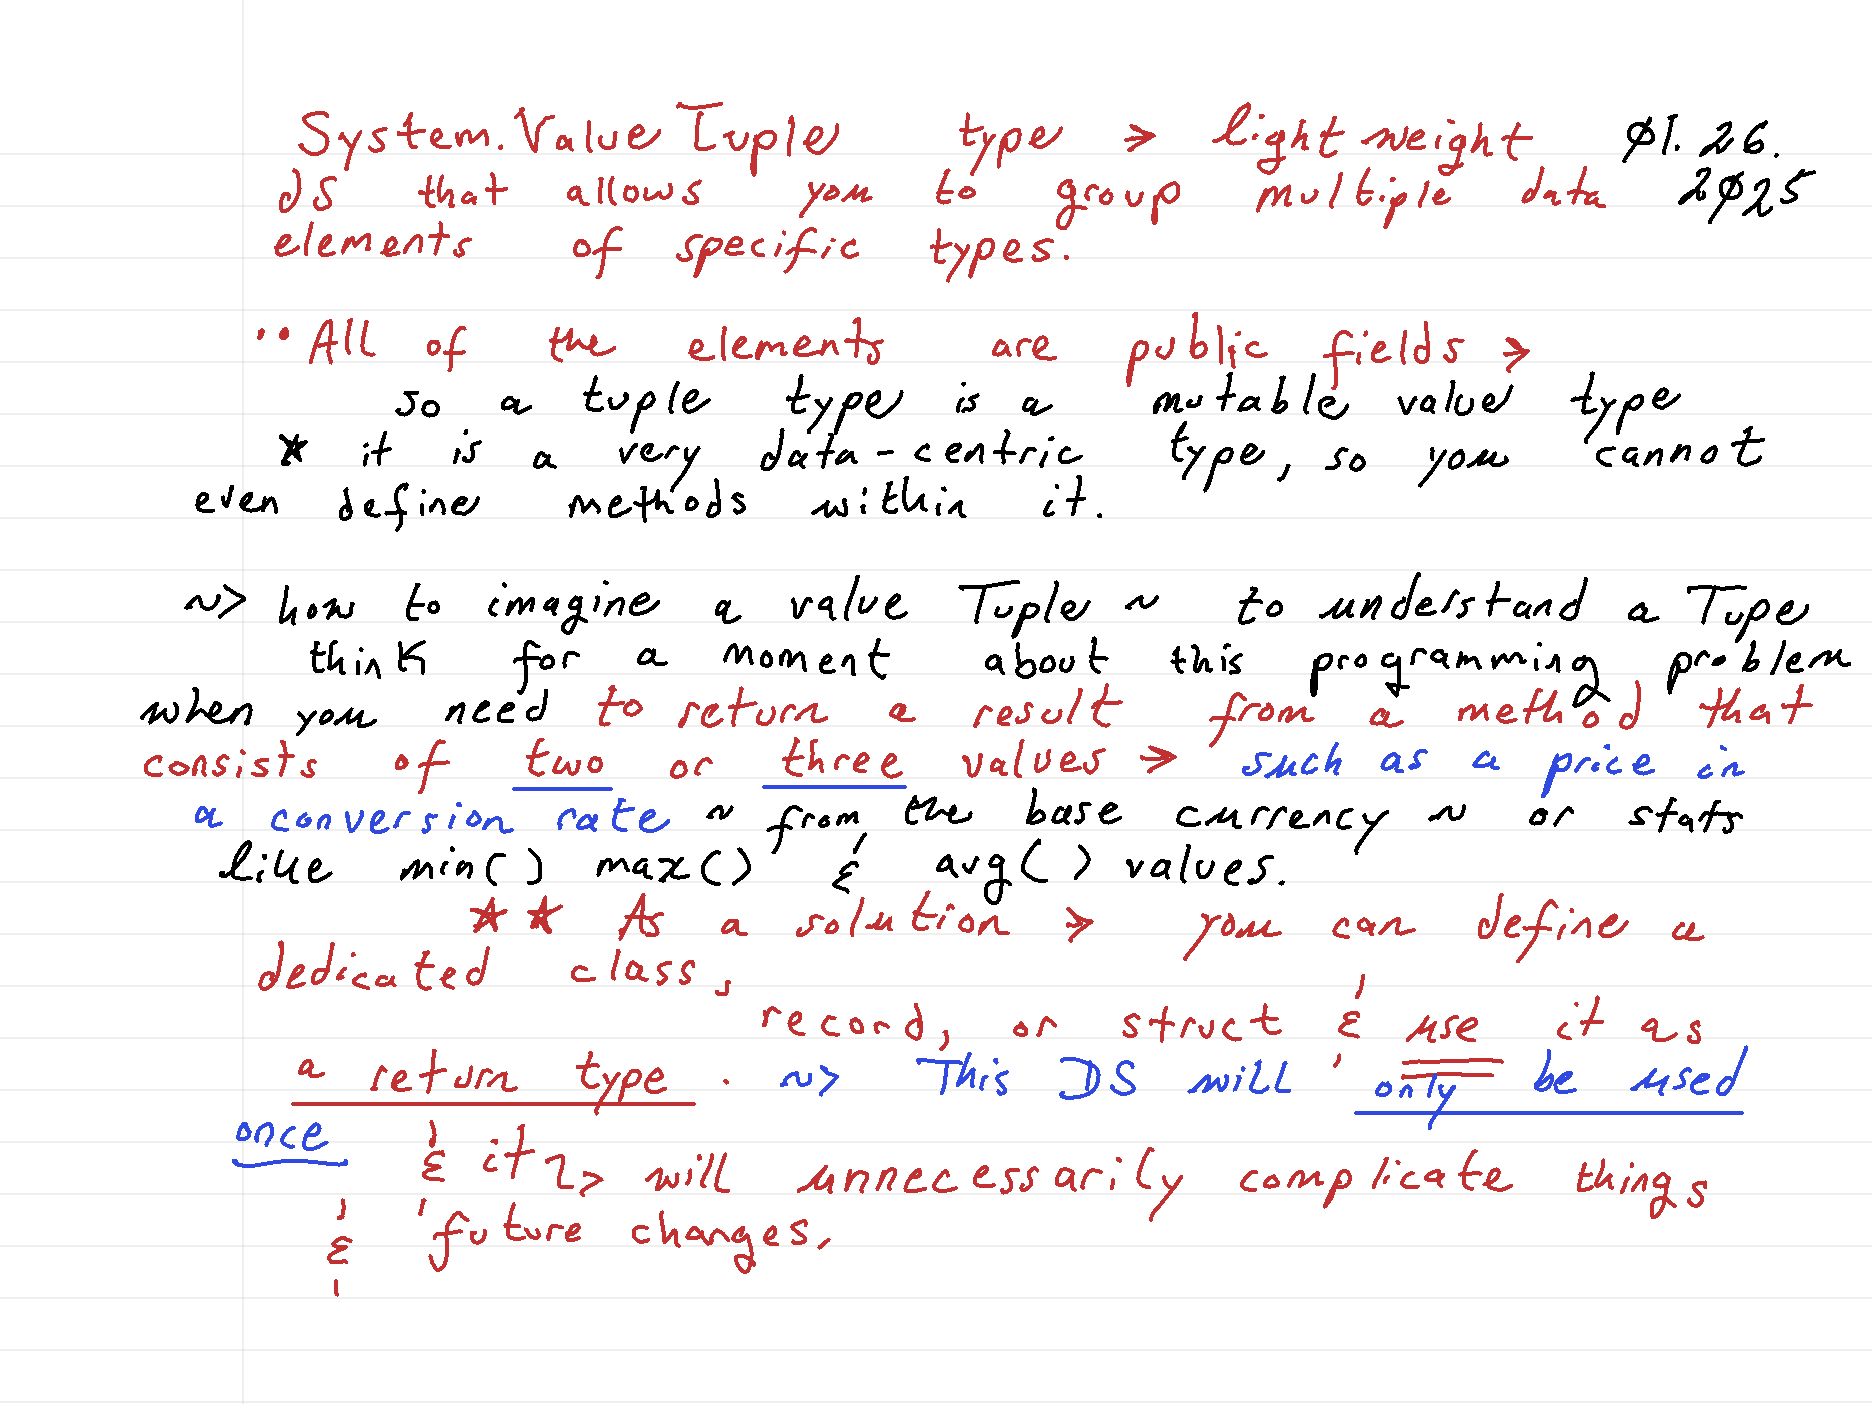 System.ValueTuple type → lightweight Ø1.26.
DS that allows you to group multiple data 2Ø25
elements of specific types.
•• All of the elements are public fields →
so a tuple type is a mutable value type
* it is a very data-centric type, so you cannot
even define methods within it.
~> how to imagine a value Tuple ~ to understand a Tupe
think for a moment about this programming problem
when you need to return a result from a method that
consists of two or three values → such as a price in
a conversion rate ~ from the base currency ~ or stats
like min() max() & avg() values.
** As a solution → you can define a
dedicated class,
record, or struct & use it as
a return type. ~> This DS will only be used
once & it ~> will unnecessarily complicate things
& future changes.